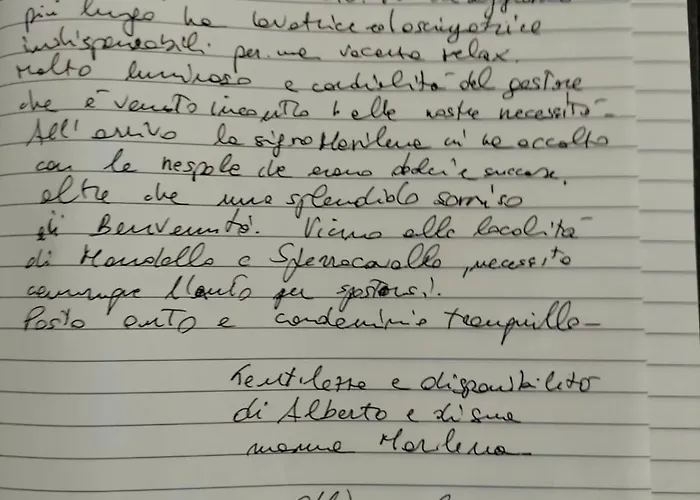 più lungo ha lavatrice ed asciugatrice
indispensabili per una vacanza relax.
Molto luminoso e cordialità del gestore
che è venuto incontro alle nostre necessità
All'arrivo la signora Marilena ci ha accolto
con le nespole che erano dolci e succose,
oltre che uno splendido sorriso
di Benvenuto. Vicino alle località
di Mondello e Sferracavallo, necessita
comunque l'auto per spostarsi.
Posto auto e condominio tranquillo-
Gentilezza e disponibilità
di Alberto e di sua
mamma Marilena